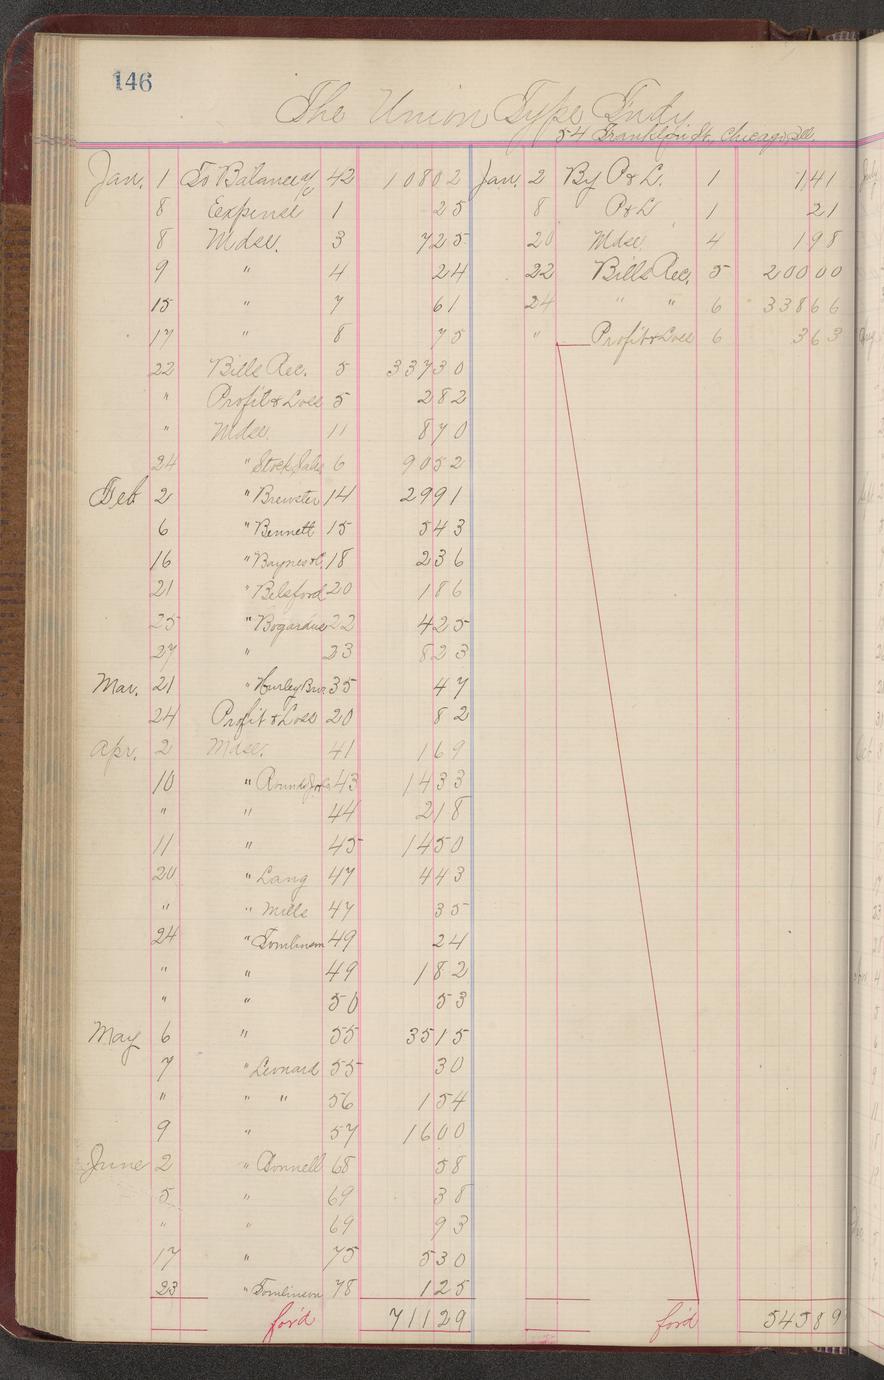 146
The Union Type Fndy.
54 Franklin St., Chicago, Ill.
Jan. 1 To Balance of 42 10802 Jan. 2 By P & L. 1 141
8 Expense 1 25 8 P & L 1 21
8 Mdse. 3 725 20 Mdse. 4 198
9 " 4 24 22 Bills Rec. 5 20000
15 " 7 61 24 " " 6 33866
17 " 8 75 " Profit & Loss 6 363
22 Bills Rec. 5 33730
" Profit & Loss 5 282
" Mdse. 11 870
24 " Stock Sales 6 9052
Feb 2 " Brewster 14 2991
6 " Bennett 15 543
16 " Baynes & C. 18 236
21 " Belsford 20 186
25 " Bogardus 22 425
27 " 23 823
Mar. 21 " Hurley Bro 35 47
24 Profit & Loss 20 82
Apr. 2 Mdse. 41 169
10 " 43 1433
" " 44 218
11 " 45 1450
20 " Lang 47 443
" " Mills 47 35
24 " Tomlinson 49 24
" " 49 182
" " 50 53
May 6 " 55 3515
7 " Leonard 55 30
" " " 56 154
9 " 57 1600
June 2 " Donnell 68 58
5 " 69 38
" " 69 93
17 " 75 530
23 " Tomlinson 78 125
for'd 71129 for'd 54589